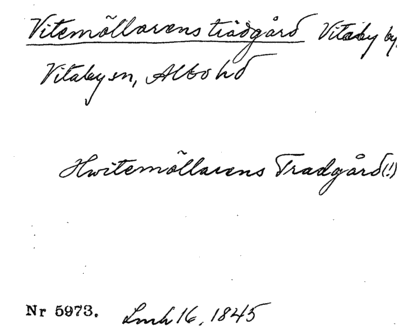 Vitemöllarens trädgård Vitaby by,
Vitaby sn, Albo hd
Hwitemöllarens Tradgård (!)
Nr 5973. Lmh 16, 1845